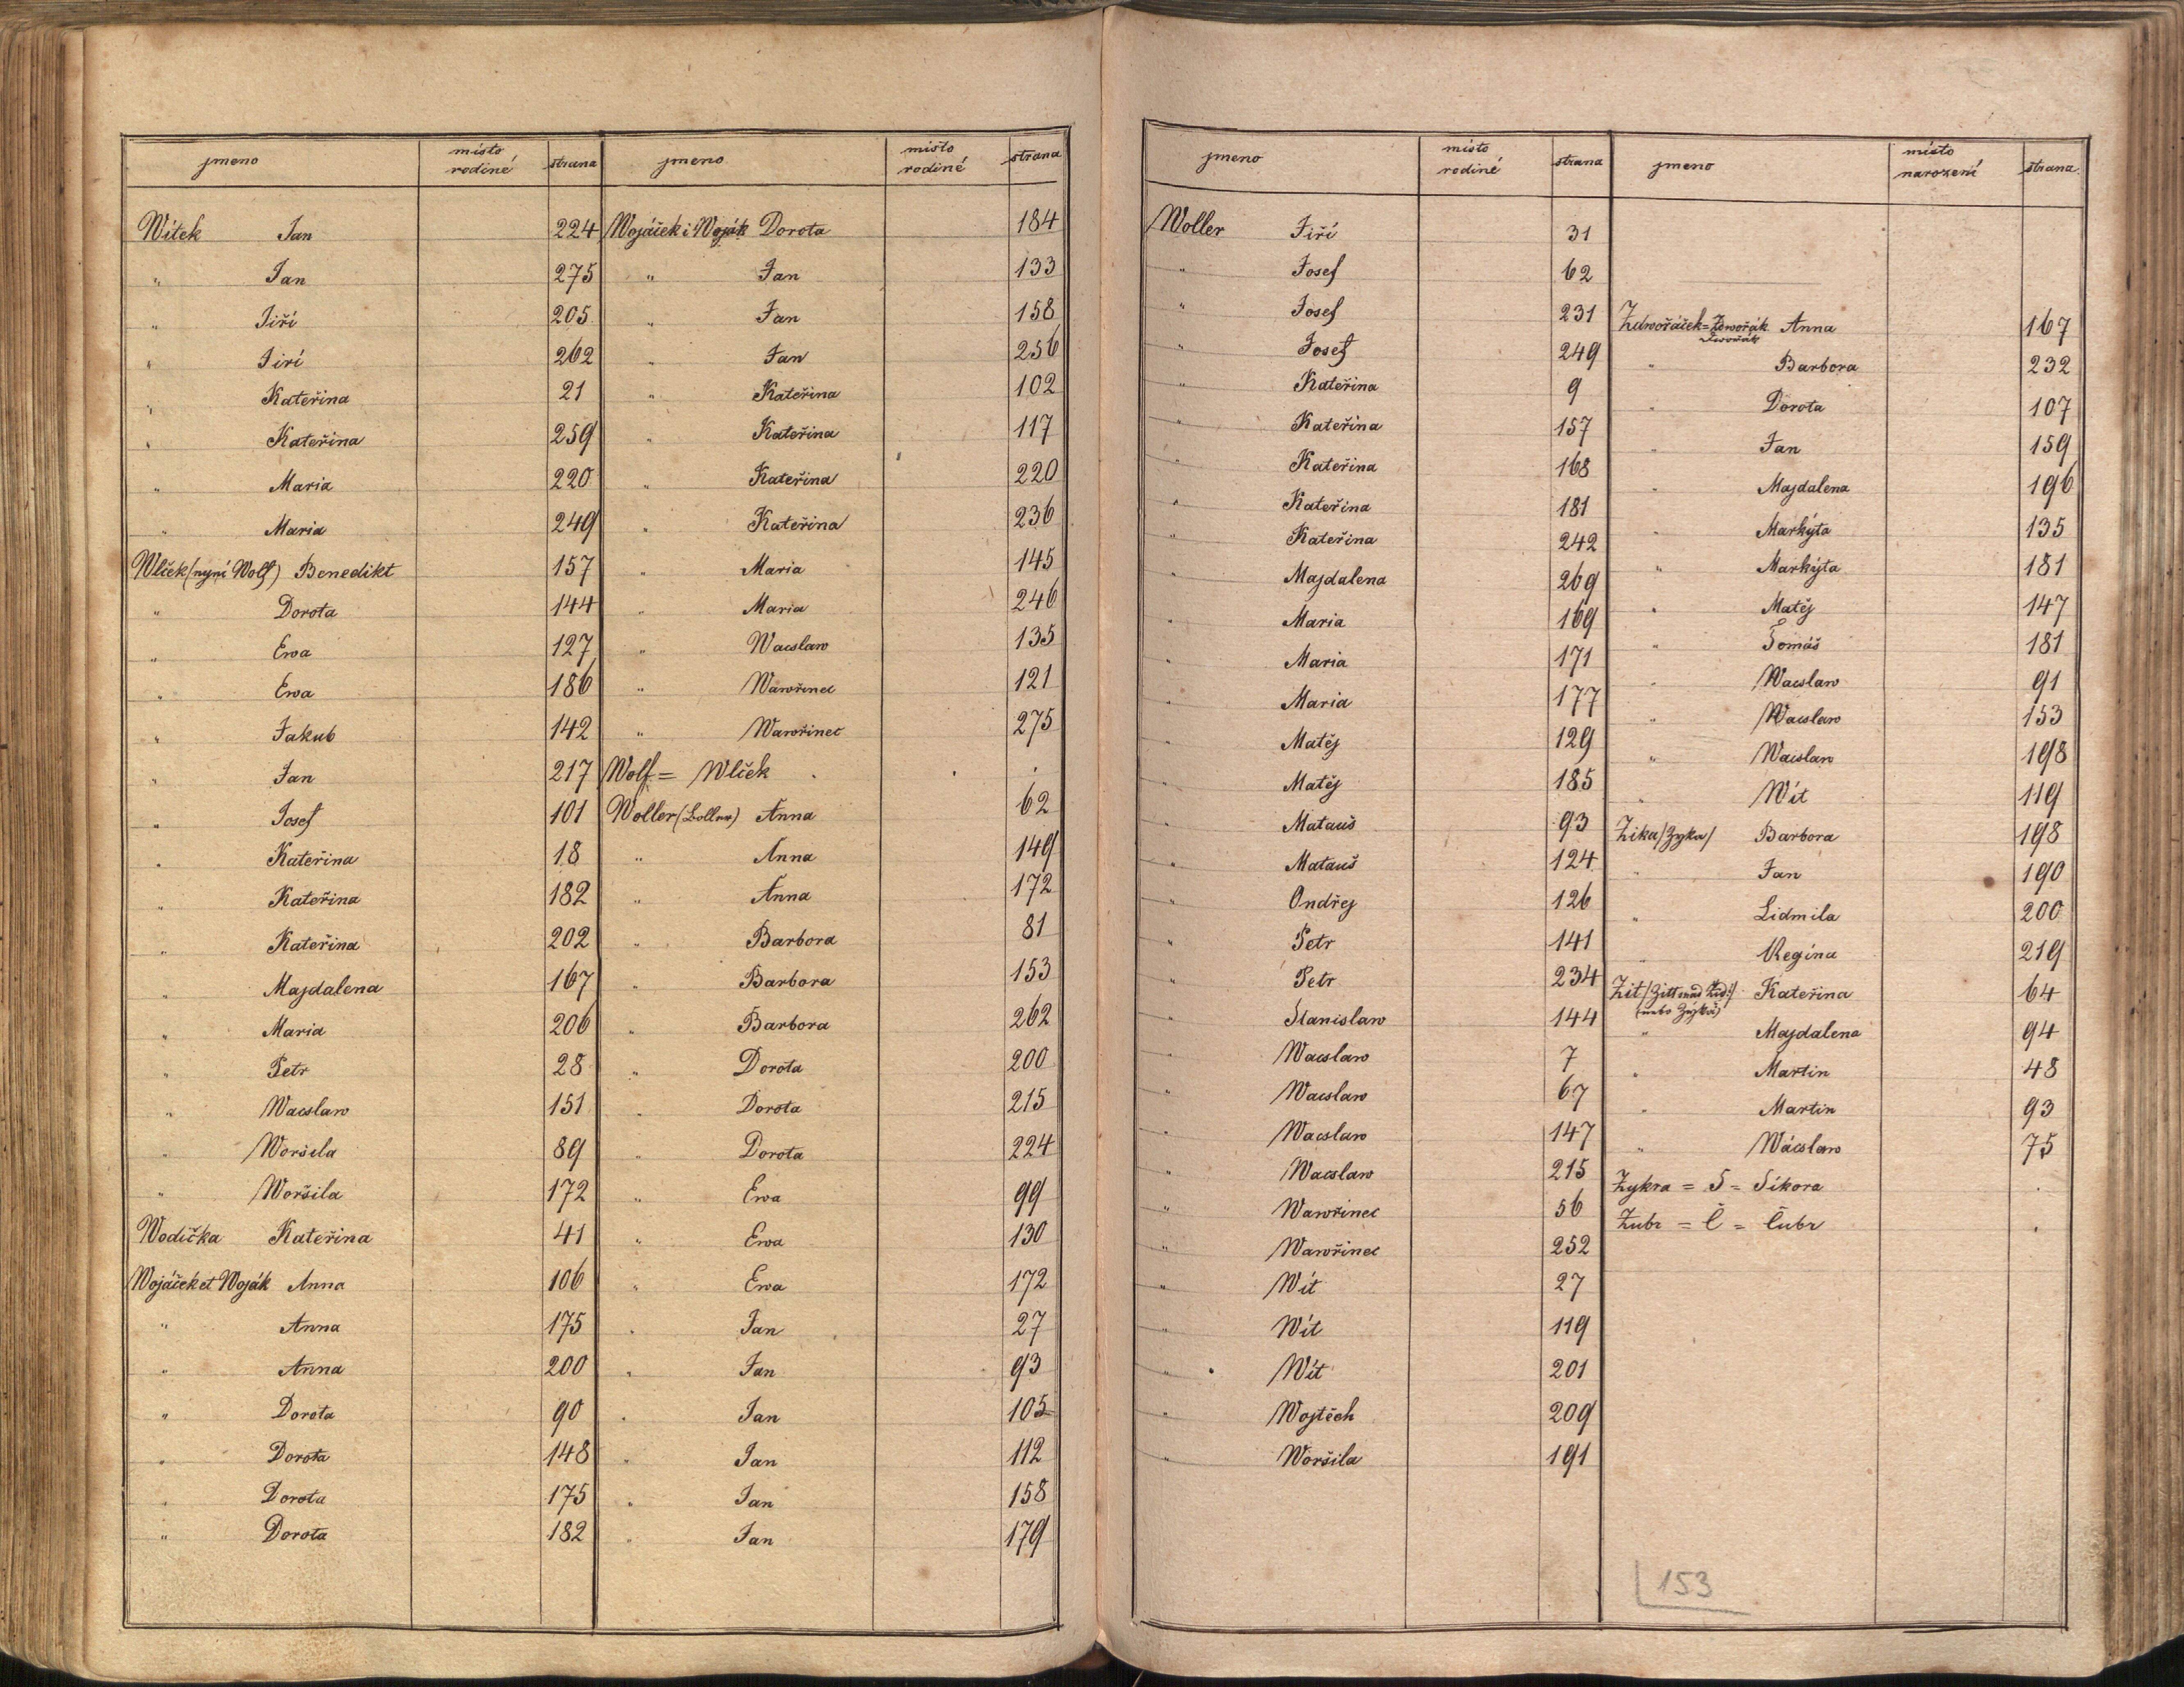 jmeno místo rodiné strana
Witek Jan 224
" Jan 275
" Jiří 205
" Jiří 262
" Kateřina 21
" Kateřina 259
" Maria 220
" Maria 249
Wlček (nyní Wolf) Benedikt 157
" Dorota 144
" Ewa 127
" Ewa 186
" Jakub 142
" Jan 217
" Josef 101
" Kateřina 18
" Kateřina 182
" Kateřina 202
" Majdalena 167
" Maria 206
" Petr 28
" Wacslaw 151
" Woršila 89
" Woršila 172
Wodička Kateřina 41
Wojáček et Woják Anna 106
" Anna 175
" Anna 200
" Dorota 90
" Dorota 148
" Dorota 175
" Dorota 182
jmeno místo rodiné strana
Wojáček i Woják Dorota 184
" Jan 133
" Jan 158
" Jan 256
" Kateřina 102
" Kateřina 117
" Kateřina 220
" Kateřina 236
" Maria 145
" Maria 246
" Wacslaw 135
" Wawřinec 121
" Wawřinec 275
Wolf = Wlček
Woller (Loller) Anna 62
" Anna 149
" Anna 172
" Barbora 81
" Barbora 153
" Barbora 262
" Dorota 200
" Dorota 215
" Dorota 224
" Ewa 99
" Ewa 130
" Ewa 172
" Jan 27
" Jan 93
" Jan 105
" Jan 112
" Jan 158
" Jan 179
jmeno místo rodiné strana
Woller Jiří 31
" Josef 62
" Josef 231
" Josef 249
" Kateřina 9
" Kateřina 157
" Kateřina 168
" Kateřina 181
" Kateřina 242
" Majdalena 269
" Maria 169
" Maria 171
" Maria 177
" Matěj 129
" Matěj 185
" Matauš 93
" Matauš 124
" Ondřej 126
" Petr 141
" Petr 234
" Stanislaw 144
" Wacslaw 7
" Wacslaw 67
" Wacslaw 147
" Wacslaw 215
" Wawřinec 56
" Wawřinec 252
" Wít 27
" Wít 119
" Wít 201
" Wojtěch 209
" Woršila 191
jmeno místo narození strana
Zdwořáček = Zdwořák Anna 167
Dwořák
" Barbora 232
" Dorota 107
" Jan 159
" Majdalena 196
" Markýta 135
" Markýta 181
" Matěj 147
" Tomáš 181
" Wacslaw 91
" Wacslaw 153
" Wacslaw 198
" Wít 119
Zika /Zyka/ Barbora 198
" Jan 190
" Lidmila 200
" Regina 219
Zit /Zitt und Žid/ Kateřina 64
(nebo Zýka)
" Majdalena 94
" Martin 48
" Martin 93
" Wácslaw 75
Zykra = S = Sikora
Zubr = Č = Čubr
153